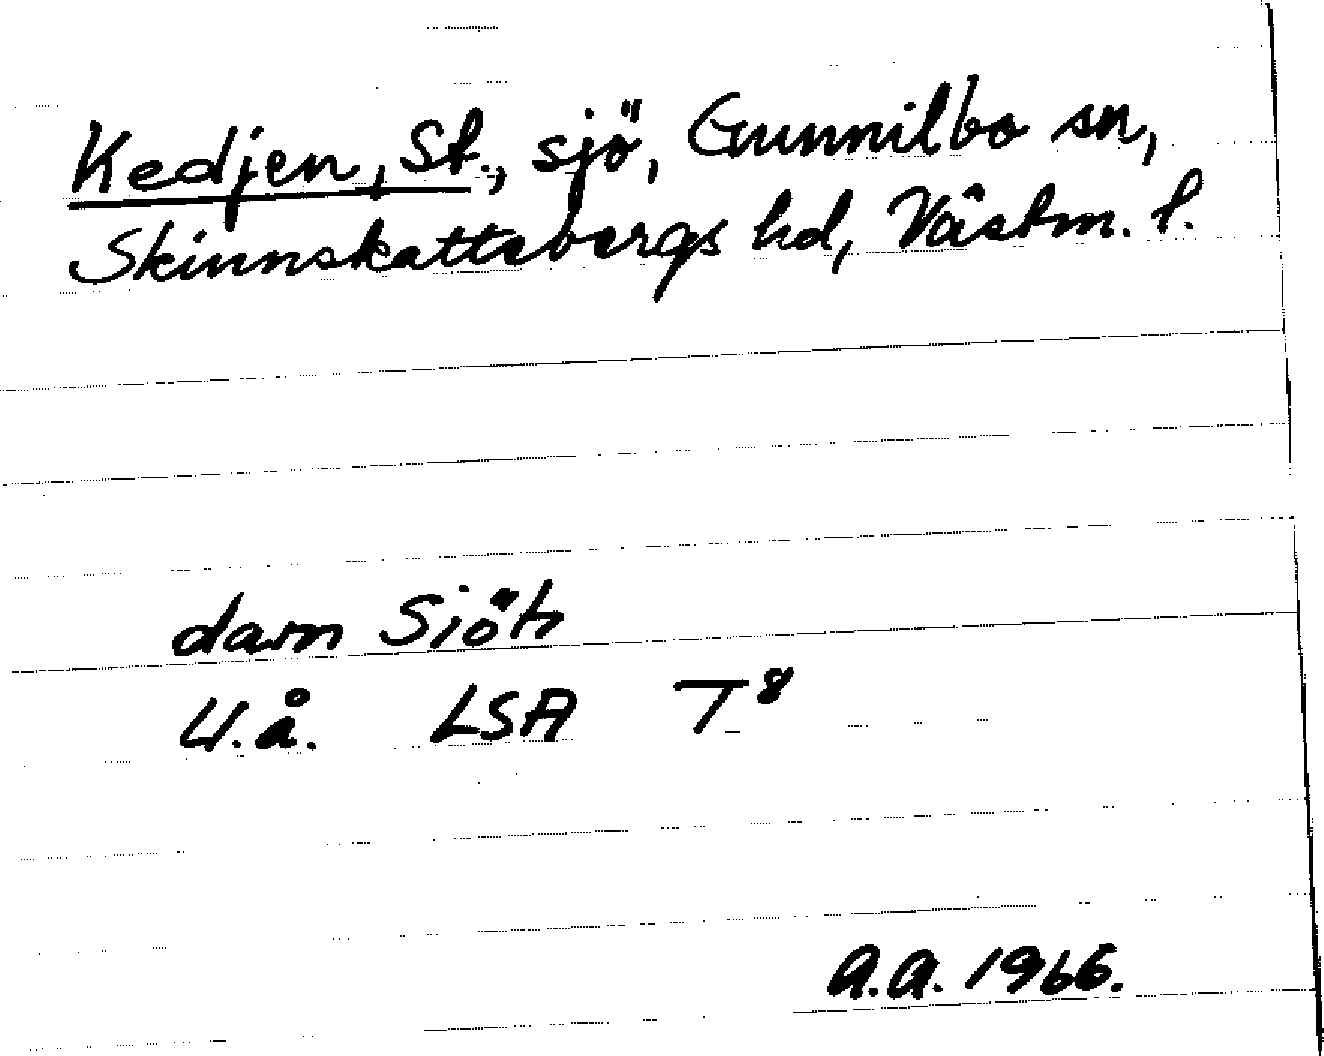 Kedjen, St., sjö, Gunnilbo sn,
Skinnskattebergs hd, Västm. l.
dam Sjöh
U.å. LSA T8
A.A. 1966.